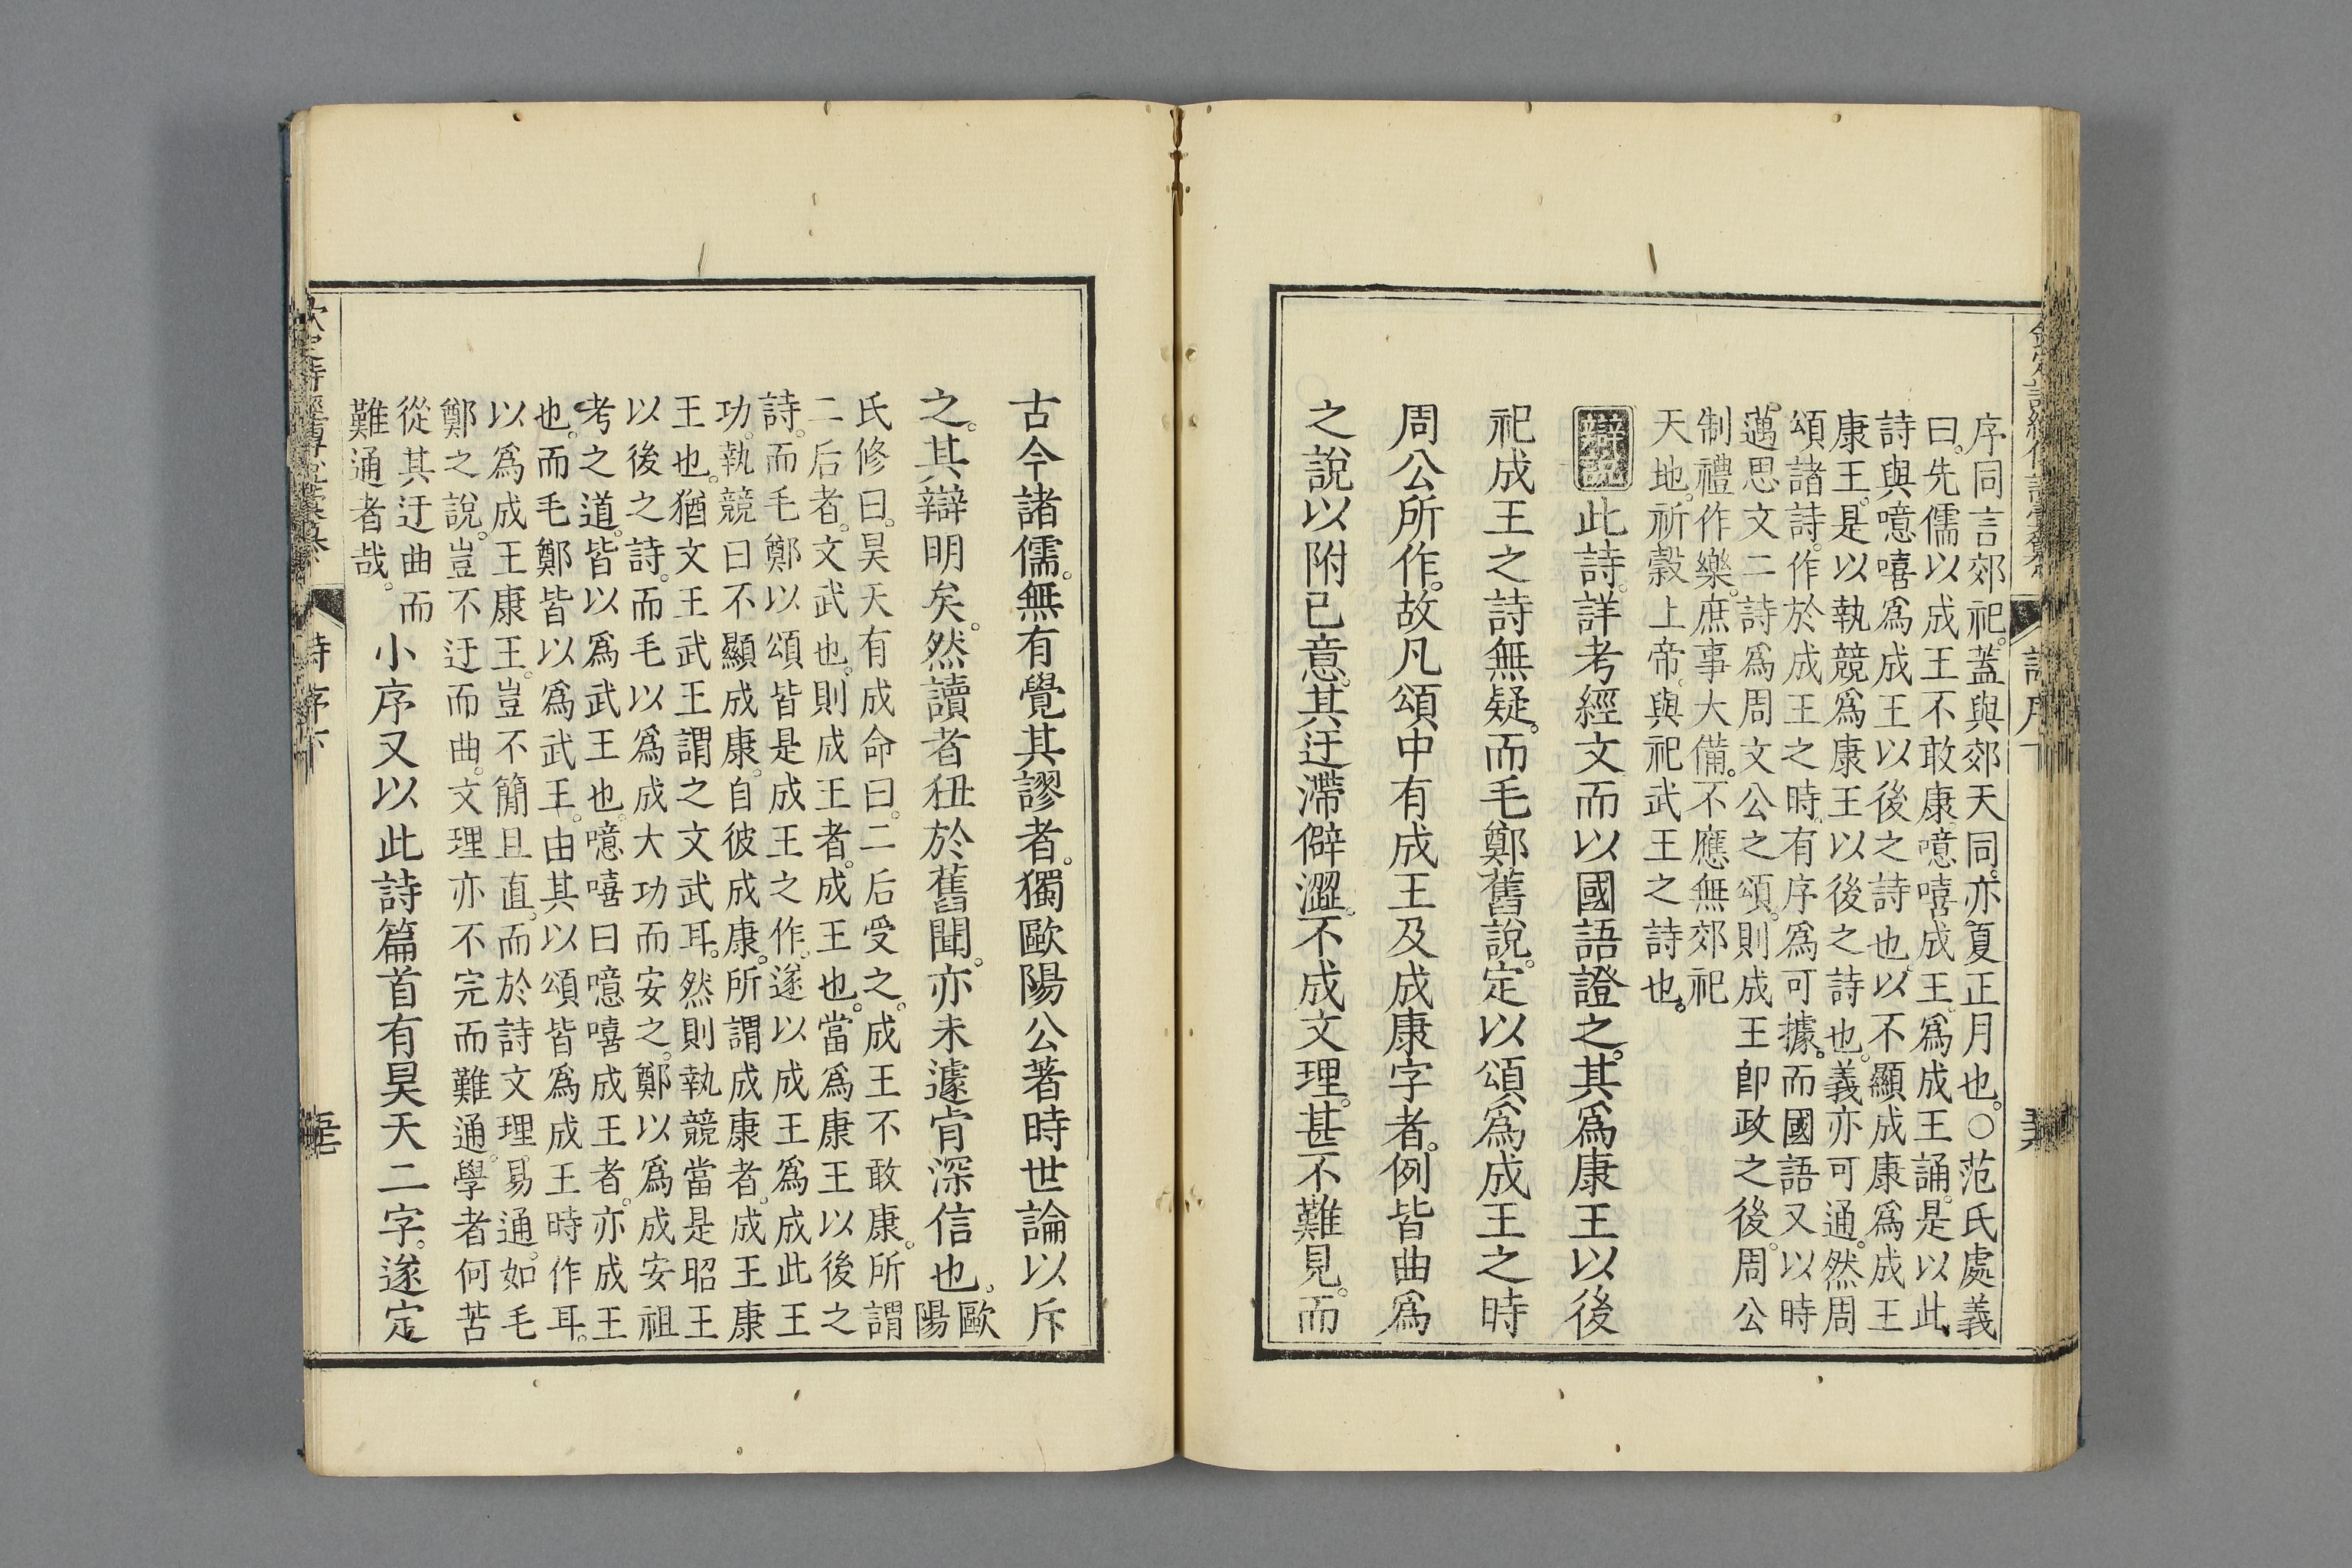 序同言郊祀。蓋與郊天同。亦夏正月也。○范氏處義
曰。先儒以成王不敢康。噫嘻成王。爲成王誦。是以此
詩與噫嘻爲成王以後之詩也。以不顯成康爲成王
康王。是以執競爲康王以後之詩也。義亦可通。然周
頌諸詩。作於成王之時。有序爲可據。而國語又以時
邁。思文二詩爲周文公之頌。則成王卽政之後。周公
制禮作樂。庶事大備。不應無郊祀
天地。祈穀上帝。與祀武王之詩也。
辯說 此詩。詳考經文。而以國語證之。其爲康王以後
祀成王之詩無疑。而毛鄭舊說。定以頌爲成王之時
周公所作。故凡頌中有成王及成康字者。例皆曲爲
之說。以附己意。其迂滯僻澀。不成文理。甚不難見。而
古今諸儒。無有覺其謬者。獨歐陽公著時世論以斥
之。其辯明矣。然讀者狃於舊聞。亦未遽肯深信也。歐
陽
氏修曰。昊天有成命曰。二后受之。成王不敢康。所謂
二后者。文武也。則成王者。成王也。當爲康王以後之
詩。而毛鄭以頌皆是成王之作。遂以成王爲成此王
功。執競曰不顯成康。自彼成康。所謂成康者。成王康
王也。猶文王武王謂之文武耳。然則執競當是昭王
以後之詩。而毛以爲成大功而安之。鄭以爲成安祖
考之道。皆以爲武王也。噫嘻曰噫嘻成王者。亦成王
也。而毛鄭皆以爲武王。由其以頌皆爲成王時作耳。
以爲成王康王。豈不簡且直。而於詩文理。易通。如毛
鄭之說。豈不迂而曲。文理亦不完而難通。學者何苦
從其迂曲而
難通者哉。
小序又以此詩篇首有昊天二字。遂定
詩序下